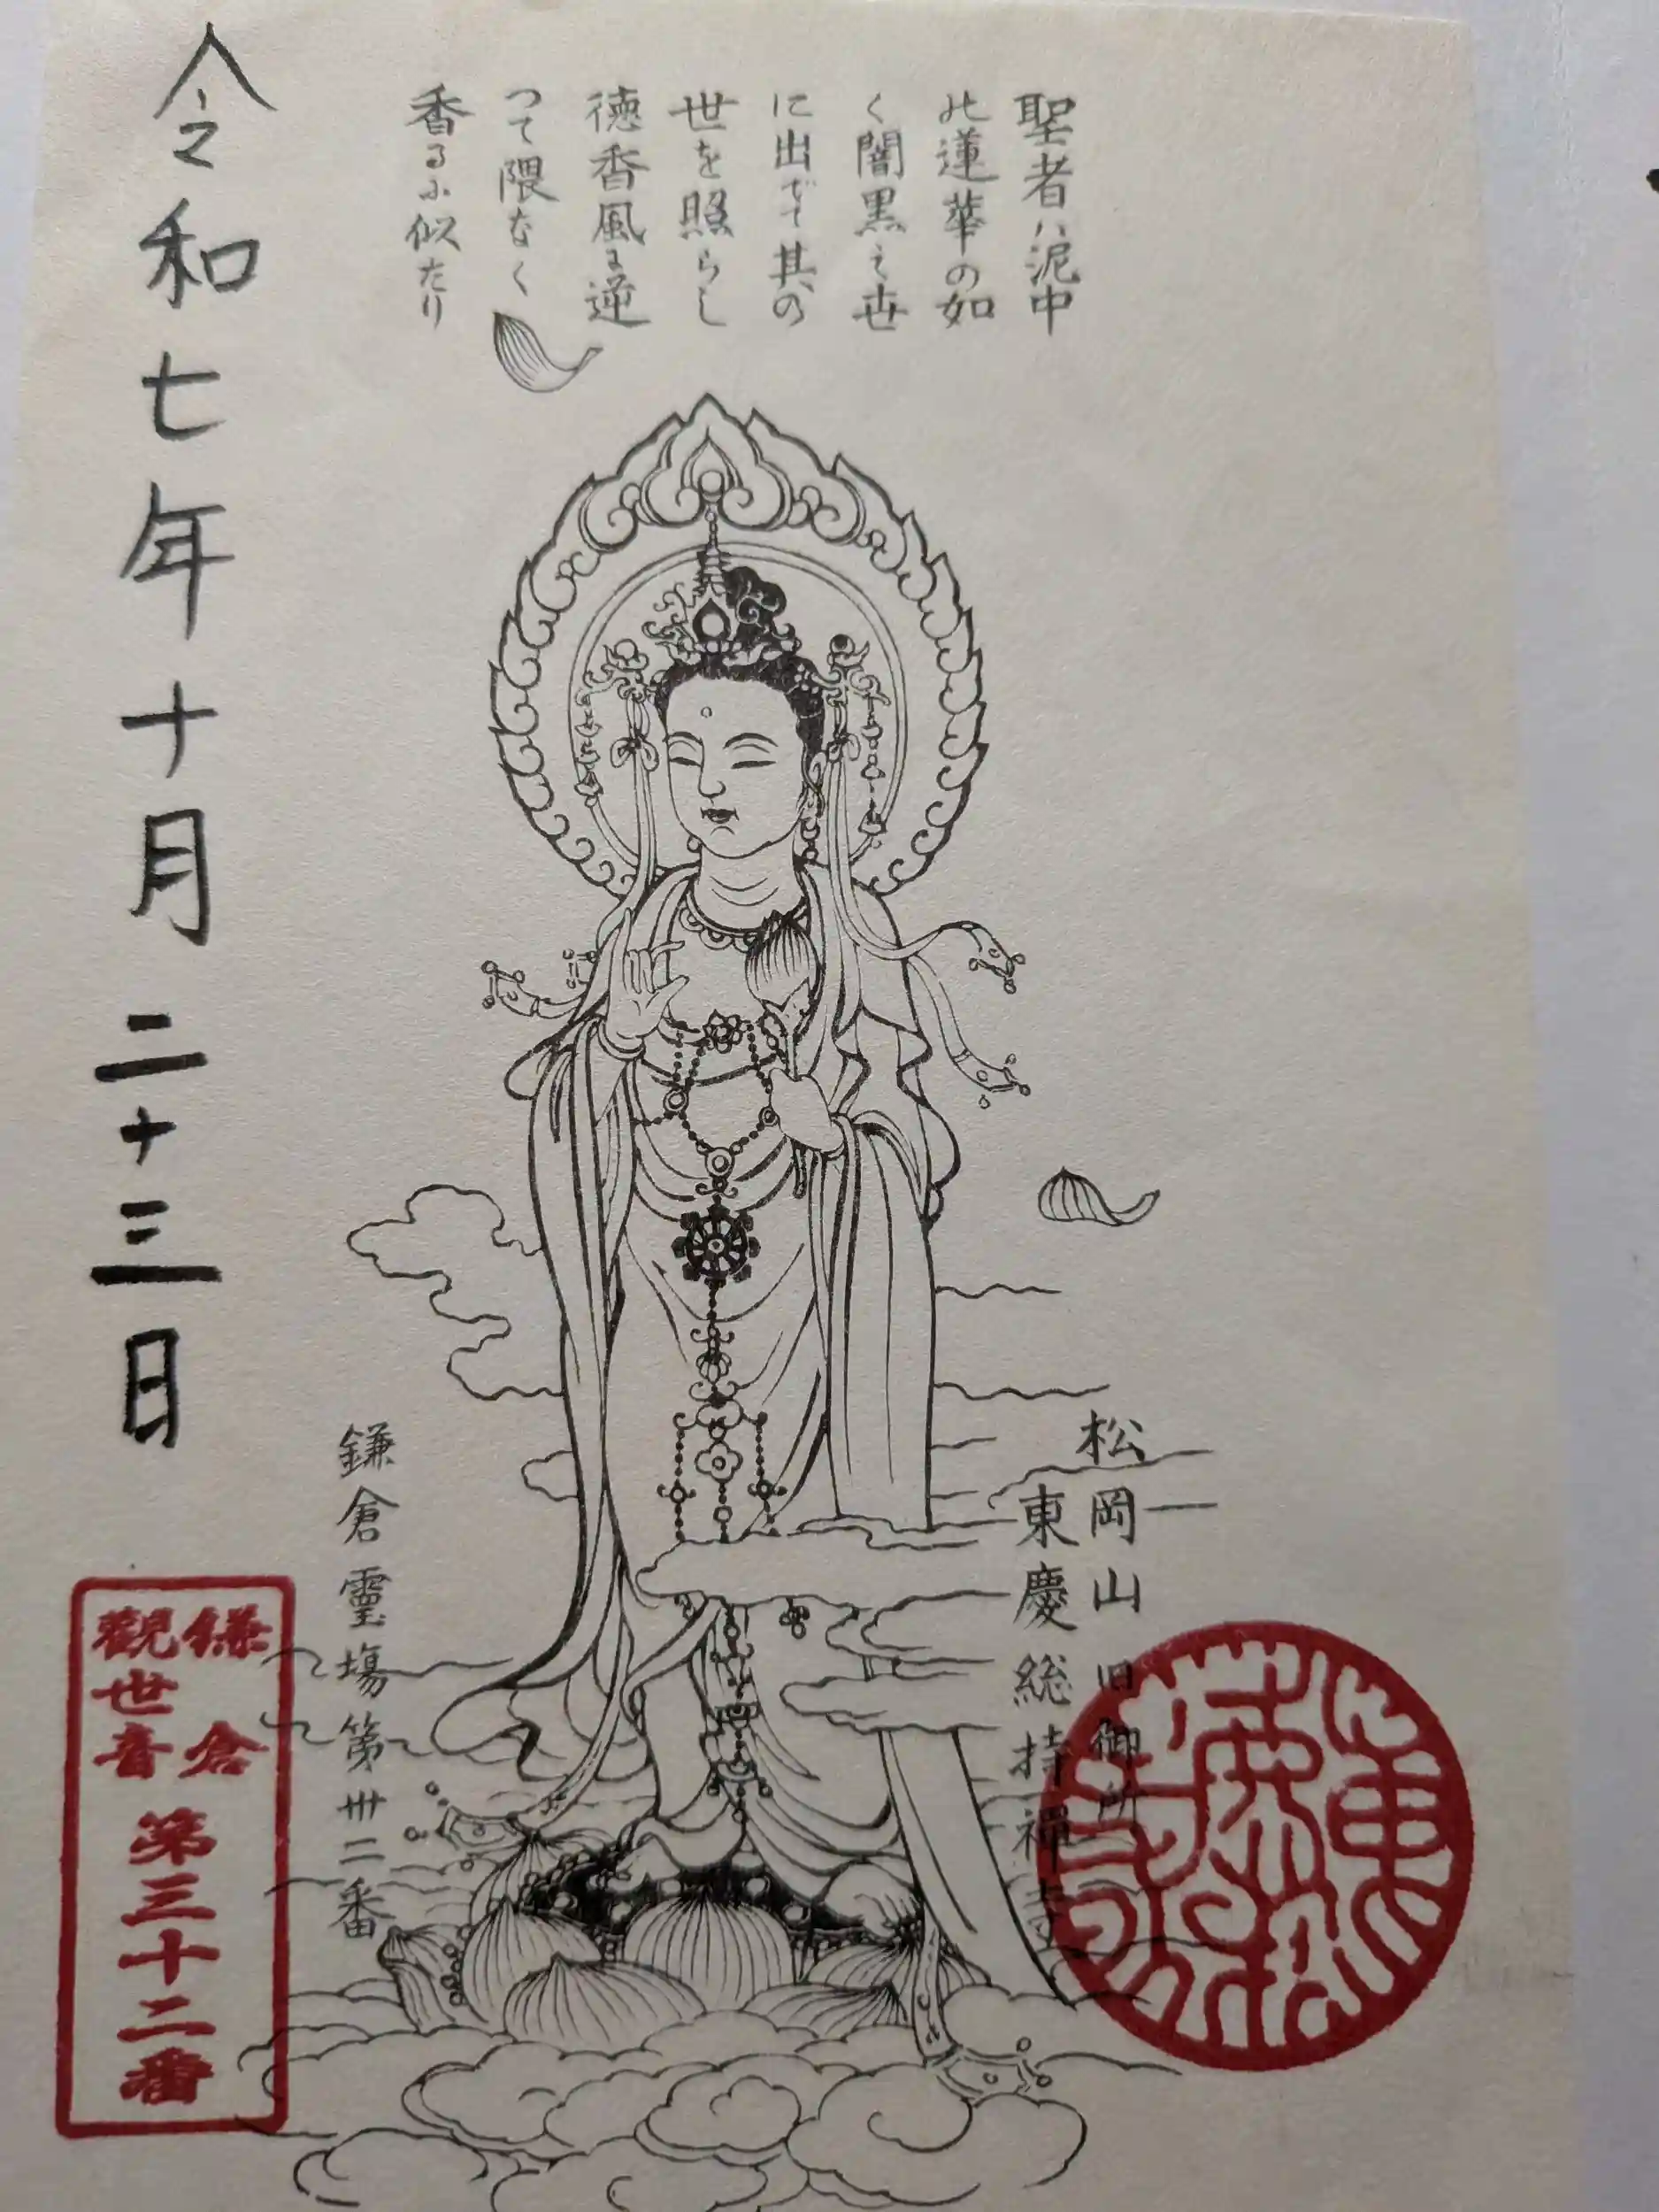 聖者ハ泥中
の蓮華の如
く闇黒之世
に出でて其の
世を照らし
徳香風に逆
つて隈なく
香るに似たり
松岡山旧御所
東慶総持禅寺
鎌倉霊場第卅二番
令和七年十月二十三日
鎌倉
観世音
第三十二番